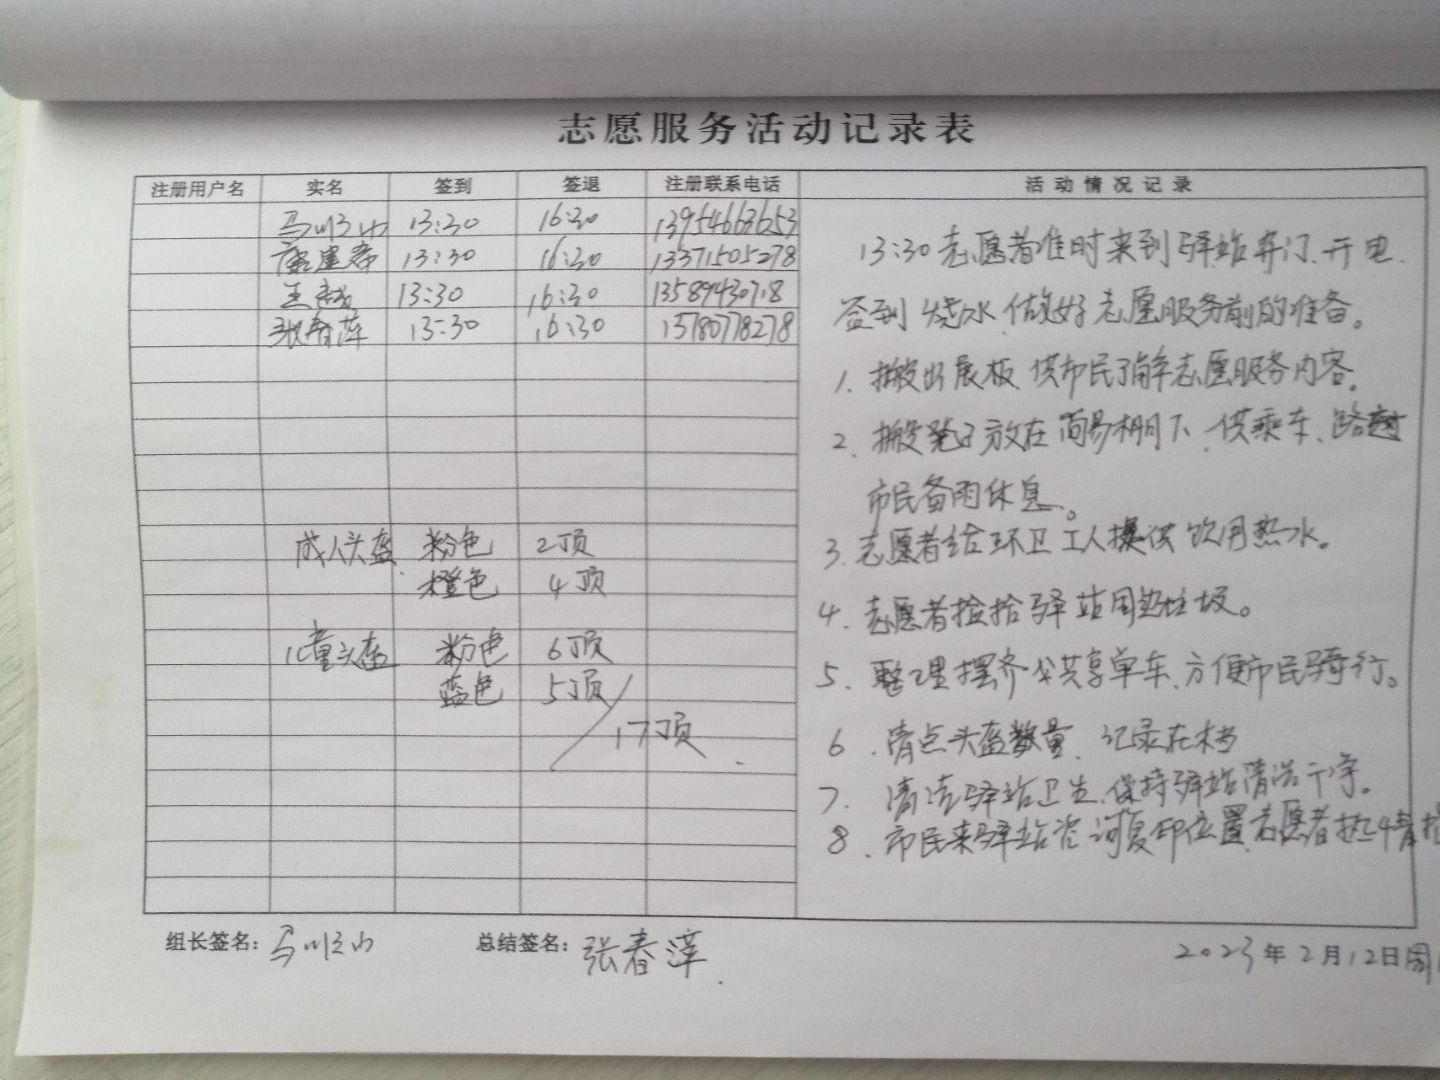 志愿服务活动记录表
注册用户名 实名 签到 签退 注册联系电话 活动情况记录
13:30 16:30 13954663653
13:30 16:30 13371505278
13:30 16:30
张春萍 13:30 16:30 15780778278
成人头盔 粉色 2顶
橙色 4顶
儿童头盔 粉色 6顶
蓝色 5顶
17顶
13:30志愿者准时来到驿站开门、开电、
签到 烧水、做好志愿服务前的准备。
1、搬出展板、供市民了解志愿服务内容。
2、搬凳子放在简易棚下、供乘车、路过
市民备雨休息。
3、志愿者给环卫工人提供饮用热水。
4、志愿者捡拾驿站周边垃圾。
5、整理摆齐公共享单车、方便市民骑行。
6、清点头盔数量、记录在档
7、清洁驿站卫生、保持驿站清洁干净。
8、市民来驿站咨询复印位置、志愿者热情
组长签名： 总结签名：张春萍
2023年2月12日周